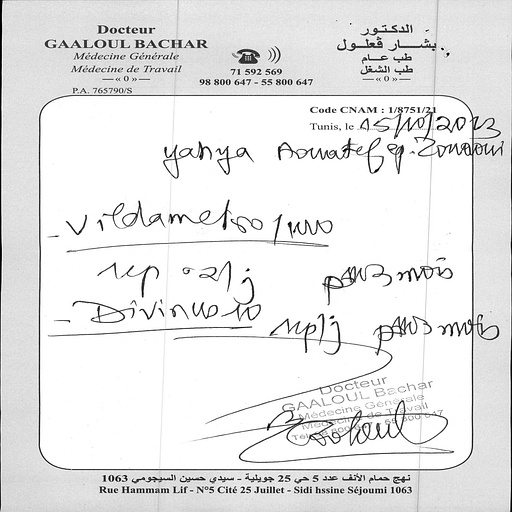 Docteur
GAALOUL BACHAR
Médecine Générale
Médecine de Travail
—« 0 »—
P.A. 765790/S
71 592 569
98 800 647 - 55 800 647
الدكتور
بشار ڨعلول
طب عام
طب الشغل
—« 0 »—
Code CNAM : 1/8751/21
Tunis, le 15/10/2023
yahya Aouatef ep. Zouaoui
- Vildametso /1000
1cp x 2/j
3 mois
- Divinus 10
1cp/j
3 mois
Docteur
GAALOUL Bachar
Médecine Générale
Médecine de Travail
نهج حمام الأنف عدد 5 حي 25 جويلية - سيدي حسين السيجومي 1063
Rue Hammam Lif - N°5 Cité 25 Juillet - Sidi hssine Séjoumi 1063